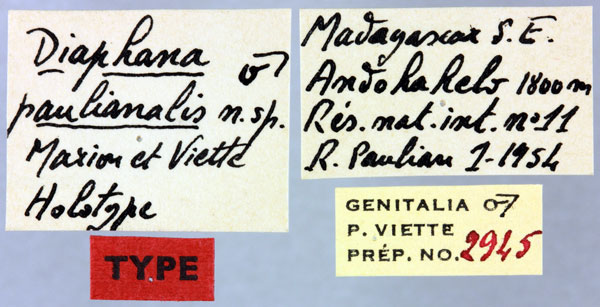 Diaphana ♂
paulianalis n.sp.
Marion et Viette
Holotype
TYPE
Madagascar S.E.
Andohahelo 1800 m
Rés. nat. int. nº 11
R. Paulian 1-1954
GENITALIA ♂
P. VIETTE
PRÉP. NO. 2945